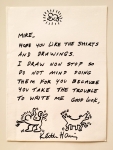 MIKE,
HOPE YOU LIKE THE SHIRTS
AND DRAWINGS.
I DRAW NON STOP SO
DO NOT MIND DOING
THEM FOR YOU BECAUSE
YOU TAKE THE TROUBLE
TO WRITE ME